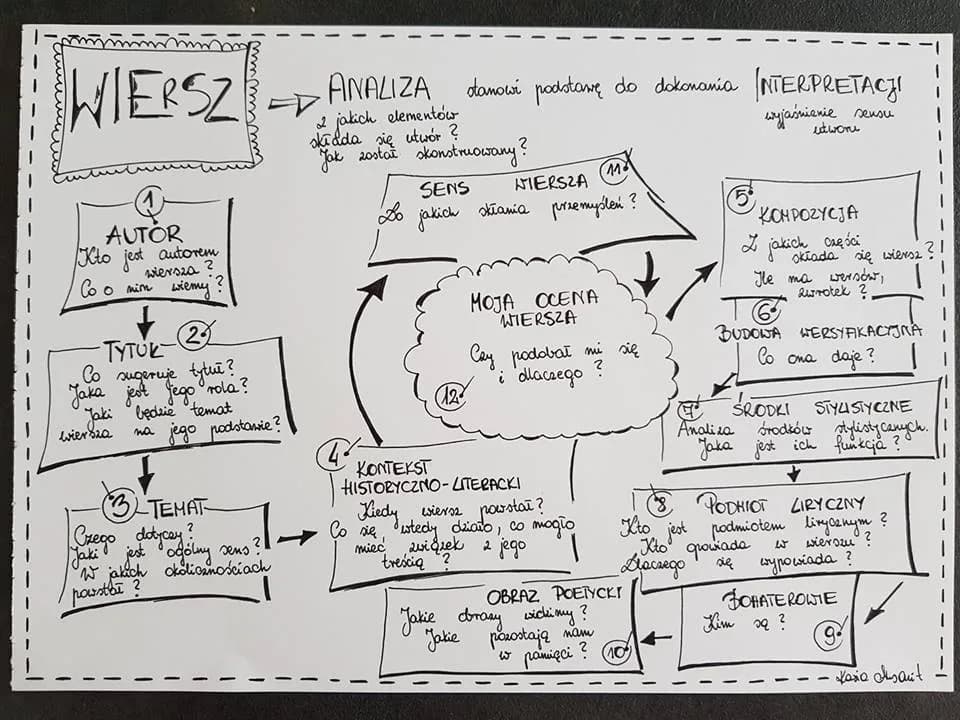 WIERSZ
ANALIZA stanowi podstawę do dokonania INTERPRETACJI
z jakich elementów
składa się utwór?
Jak został skonstruowany?
wyjaśnienie sensu
utworu
1
AUTOR
Kto jest autorem
wiersza?
Co o nim wiemy?
2
TYTUŁ
Co sugeruje tytuł?
Jaka jest jego rola?
Jaki będzie temat
wiersza na jego podstawie?
3 TEMAT
Czego dotyczy?
Jaki jest ogólny sens?
W jakich okolicznościach
powstał?
4 KONTEKST
HISTORYCZNO-LITERACKI
Kiedy wiersz powstał?
Co się wtedy działo, co mogło
mieć związek z jego
treścią?
5
KOMPOZYCJA
Z jakich części
składa się wiersz?
Ile ma wersów,
zwrotek?
6
BUDOWA WERSYFIKACYJNA
Co ona daje?
7 ŚRODKI STYLISTYCZNE
Analiza środków stylistycznych.
Jaka jest ich funkcja?
8 PODMIOT LIRYCZNY
Kto jest podmiotem lirycznym?
Kto opowiada w wierszu?
Dlaczego się wypowiada?
BOHATEROWIE
Kim są?
9
OBRAZ POETYCKI
Jakie obrazy widzimy?
Jakie pozostają nam
w pamięci?
10
11
SENS WIERSZA
Do jakich skłania przemyśleń?
MOJA OCENA
WIERSZA
Czy podobał mi się
i dlaczego?
12
Kasia